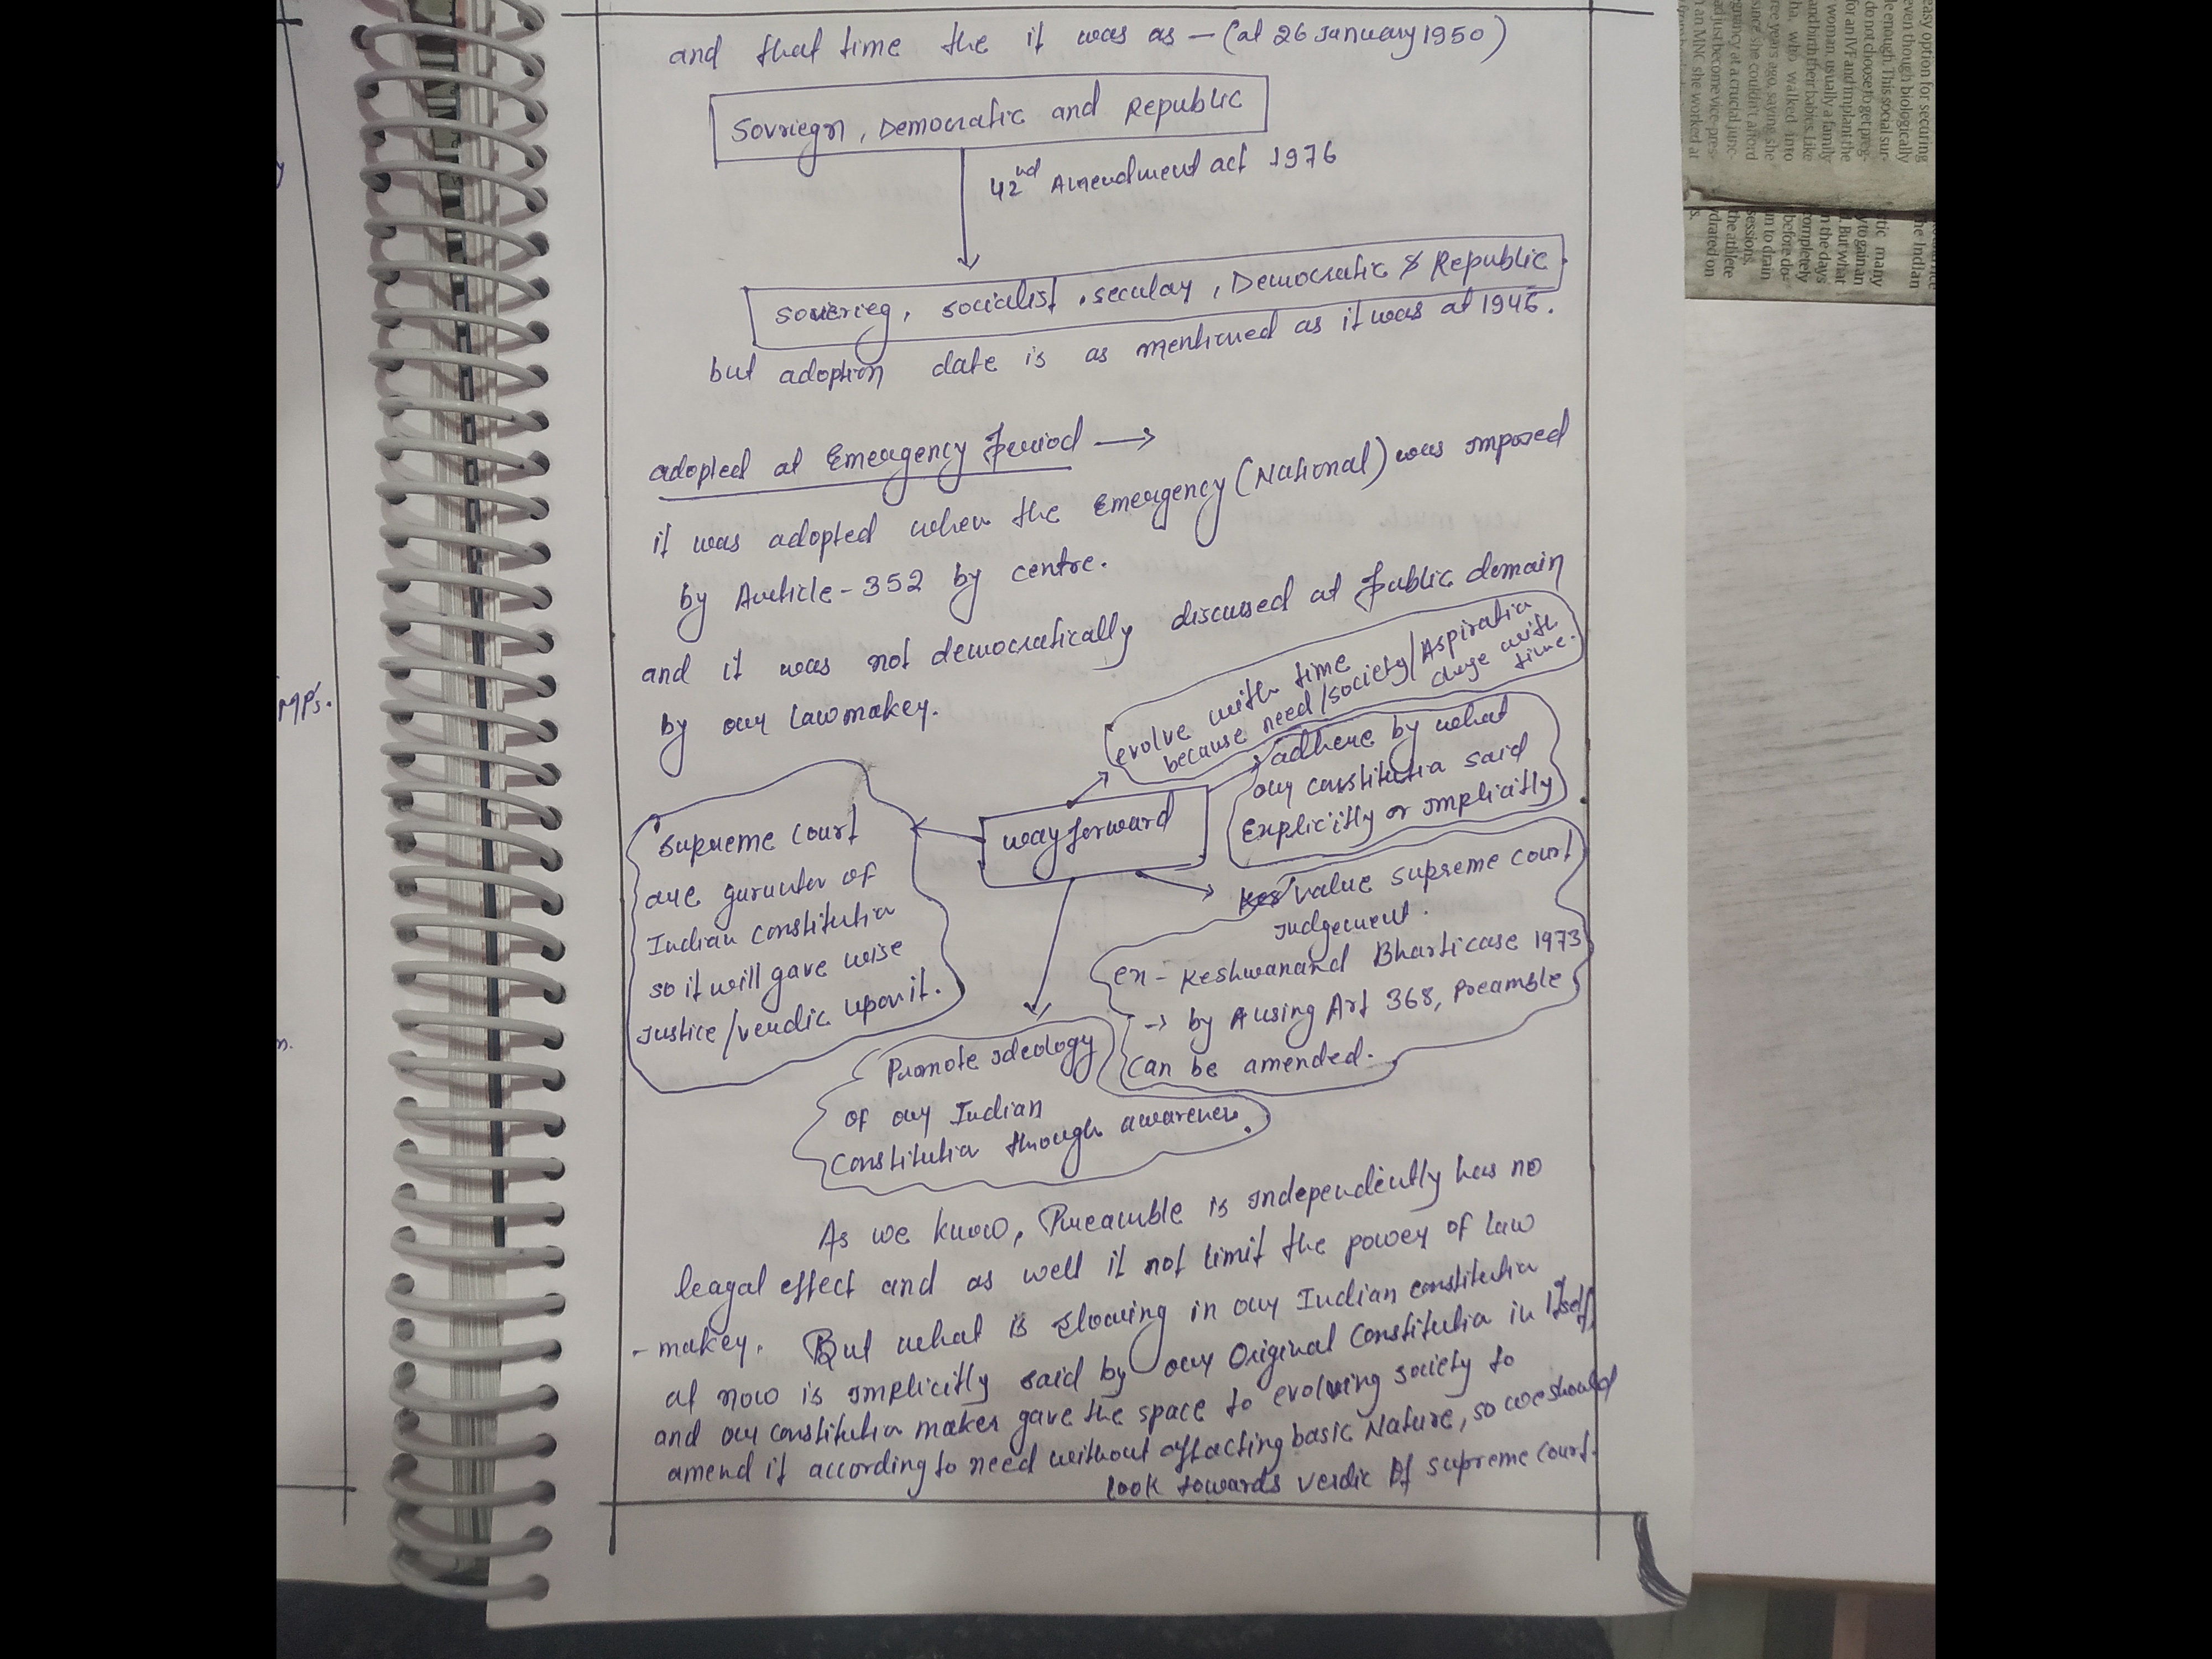 and that time the it was as - (at 26 January 1950)
Sovriegn, Democratic and Republic
42nd Amendment act 1976
Sovierieg, socialist, secular, Democratic & Republic
but adoption date is as mentioned as it was at 1946.
adopted at Emergency Period →
it was adopted when the Emergency (National) was imposed
by Article-352 by centre.
and it was not democratically discussed at Public domain
by our lawmaker.
evolve with time
because need/society/Aspiration
change with
time.
adhere by what
our constitution said
Explicitly or implicitly
way forward
Supreme Court
are guranter of
Indian constitution
so it will gave wise
justice/verdic upon it.
value supreme court
judgement.
ex - Keshwanand Bharti case 1973
→ by using Art 368, Preamble
can be amended.
Promote ideology
of our Indian
Constitution through awareness.
As we know, Preamble is independently has no
leagal effect and as well it not limit the power of law
- maker. But what is in our Indian constitution
at now is implicitly said by our Original Constitution in itself,
and our constitution maker gave the space to evolving society to
amend it according to need without affacting basic Nature, so we should
look towards verdic of supreme court.
MP's.
n.
easy option for securing
even though biologically
le enough. This social sur-
do not choose to get preg-
for an IVF and implant the
woman, usually a family
and birth their babies. Like
ha, who walked into
ree years ago, saying she
since she couldn't afford
gnancy at a crucial junc-
ad just become vice-pres-
n an MNC she worked at
the Indian
tic many
y to gain an
l. But what
n the days
completely
before do-
un to drain
sessions,
the athlete
ydrated on
s.